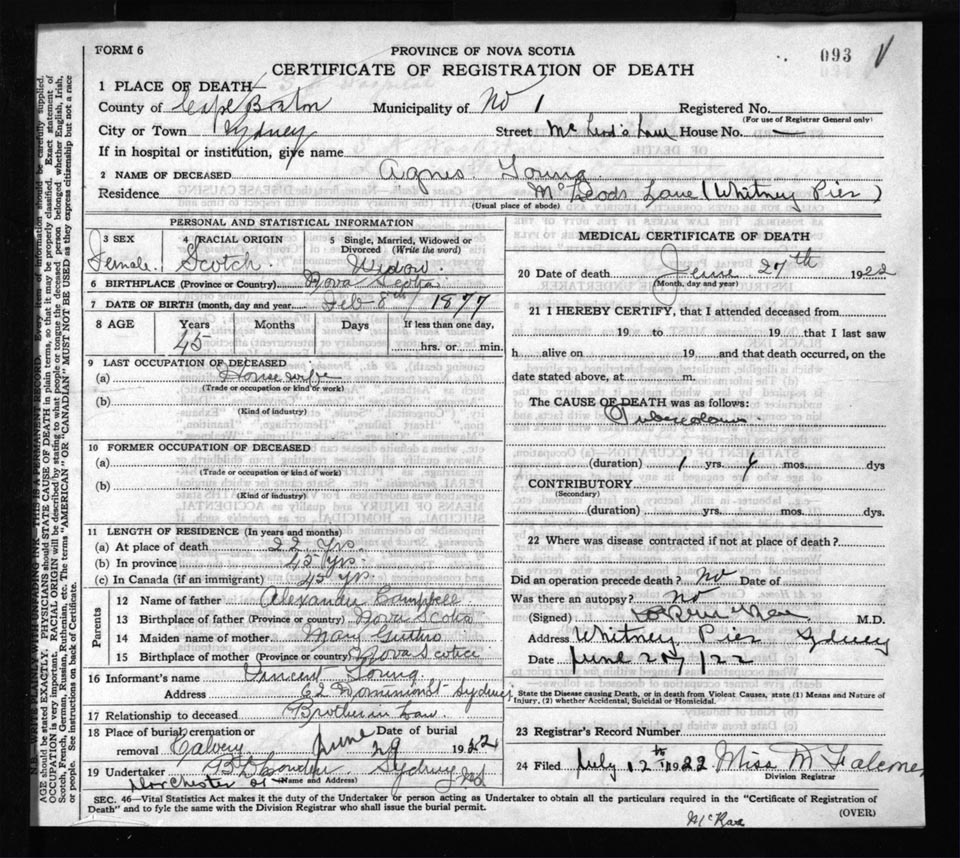 FORM 6
PROVINCE OF NOVA SCOTIA
093
CERTIFICATE OF REGISTRATION OF DEATH
1 PLACE OF DEATH
County of Cape Breton Municipality of No 1 Registered No.
(For use of Registrar General only)
City or Town Sydney Street McLeod's Lane House No. —
If in hospital or institution, give name
2 NAME OF DECEASED Agnes Young
Residence McLeods Lane (Whitney Pier)
(Usual place of abode)
PERSONAL AND STATISTICAL INFORMATION
3 SEX 4 RACIAL ORIGIN 5 Single, Married, Widowed or Divorced (Write the word)
Female. Scotch. Widow
6 BIRTHPLACE (Province or Country) Nova Scotia
7 DATE OF BIRTH (month, day and year) Feb 8th 1877
8 AGE Years Months Days If less than one day,
45 hrs. or min.
9 LAST OCCUPATION OF DECEASED
(a) Housewife
(Trade or occupation or kind of work)
(b)
(Kind of industry)
10 FORMER OCCUPATION OF DECEASED
(a)
(Trade or occupation or kind of work)
(b)
(Kind of industry)
11 LENGTH OF RESIDENCE (In years and months)
(a) At place of death 22 Yrs.
(b) In province 45 Yrs.
(c) In Canada (if an immigrant) 45 Yrs.
Parents
12 Name of father Alexander Campbell
13 Birthplace of father (Province or country) Nova Scotia
14 Maiden name of mother Mary Guthro
15 Birthplace of mother (Province or country) Nova Scotia
16 Informant's name Vincent Young
Address 62 Dominion St Sydney
17 Relationship to deceased Brother in Law
18 Place of burial, cremation or removal Calvery June 29 Date of burial 1922
19 Undertaker Sydney N.S.
(Name and Address)
Dorchester St
MEDICAL CERTIFICATE OF DEATH
20 Date of death June 27th 1922
(Month, day and year)
21 I HEREBY CERTIFY, that I attended deceased from
19 to 19 that I last saw
h alive on 19 and that death occurred, on the
date stated above, at m.
The CAUSE OF DEATH was as follows:
Tuberculosis
(duration) 1 yrs. 4 mos. dys
CONTRIBUTORY
(Secondary)
(duration) yrs. mos. dys.
22 Where was disease contracted if not at place of death?
Did an operation precede death? No Date of
Was there an autopsy? No
(Signed) M.D.
Address Whitney Pier Sydney
Date June 27/22
State the Disease causing Death, or in death from Violent Causes, state (1) Means and Nature of
Injury, (2) whether Accidental, Suicidal or Homicidal.
23 Registrar's Record Number
24 Filed July 12th 1922 Miss M
Division Registrar
SEC. 46—Vital Statistics Act makes it the duty of the Undertaker or person acting as Undertaker to obtain all the particulars required in the "Certificate of Registration of
Death" and to fyle the same with the Division Registrar who shall issue the burial permit.
(OVER)
McRae
N.B. WRITE PLAINLY WITH UNFADING INK—THIS IS A PERMANENT RECORD. Every item of information should be carefully supplied.
AGE should be stated EXACTLY. PHYSICIANS should STATE CAUSE OF DEATH in plain terms, so that it may be properly classified. Exact statement of
OCCUPATION is very important. RACIAL ORIGIN will be described by stating to what people or tongue the deceased person belonged whether English, Irish,
Scotch, French, German, Russian, Ruthenian, etc. The terms "AMERICAN" OR "CANADIAN" MUST NOT BE USED as they express citizenship but not a race
or people. See instructions on back of Certificate.